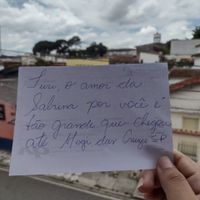 Yuri, o amor da
Sabrina por você é
tão grande que chegou
até Mogi das Cruzes SP